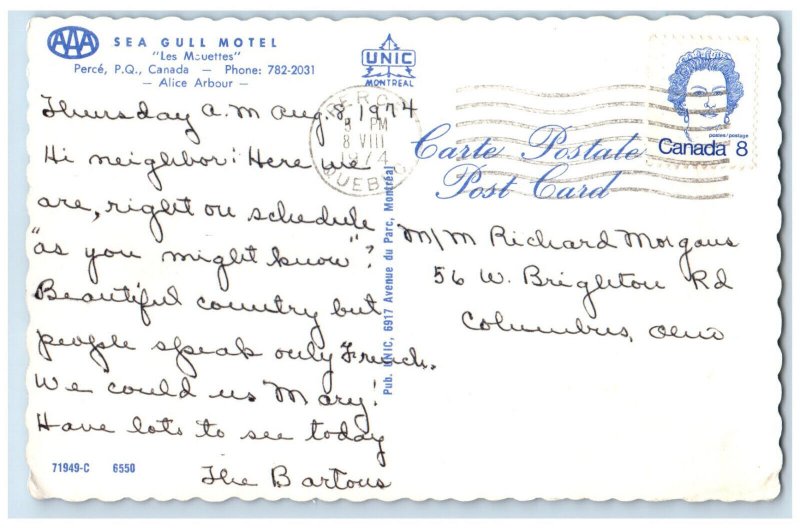 AAA
SEA GULL MOTEL
"Les Mouettes"
Percé, P.Q., Canada — Phone: 782-2031
— Alice Arbour —
UNIC
MONTREAL
Thursday a.m Aug. 8, 1974
Hi neighbor! Here we
are, right on schedule
"as you might know"?
Beautiful country but
people speak only French.
We could us Mary!
Have lots to see today
The Bartons
71949-C 6550
Pub. UNIC, 6917 Avenue du Parc, Montréal
PERCE
PM
8 VIII
1974
QUEBEC
postes/postage
Canada 8
Carte Postale
Post Card
M/M Richard Morgans
56 W. Brighton Rd
Columbus, Ohio